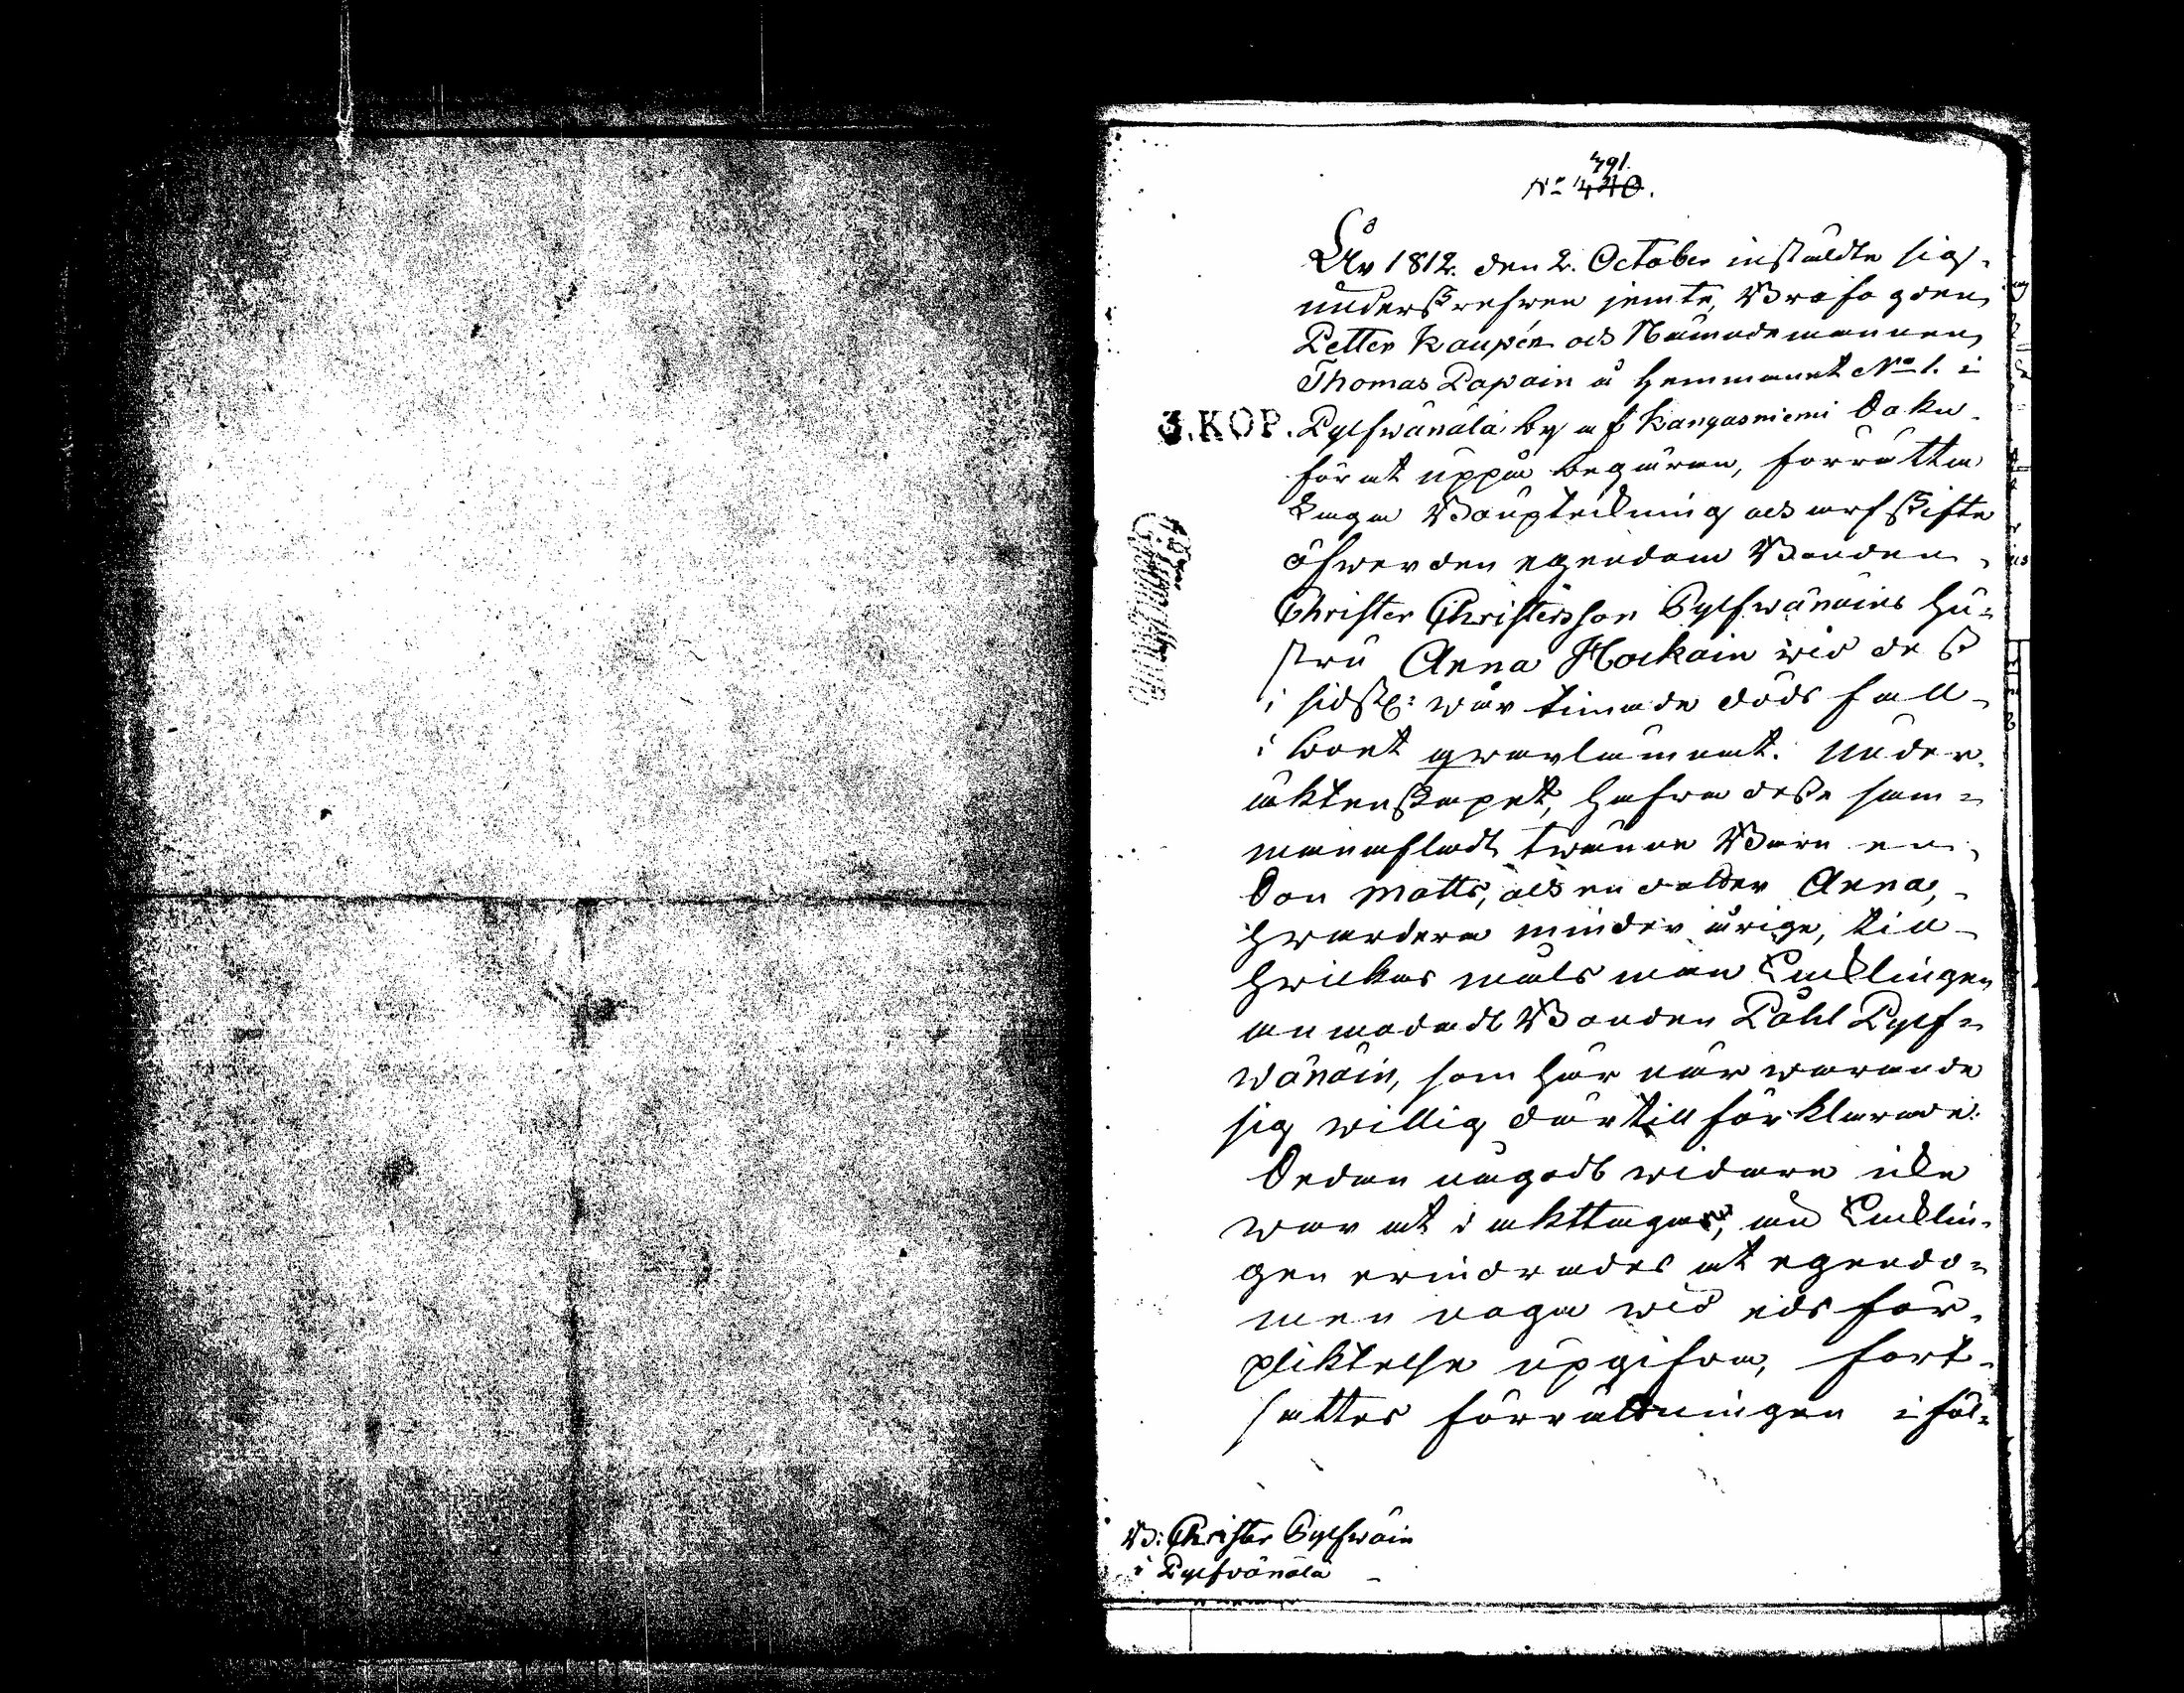 791.
No 440.
År 1812. den 2. October instäldte sig
underskrefven jemte, Brofogden
Petter Kaupén och Nämndemannen
Thomas Papain å Hemmanet No 1. i
3. KOP. Pylfwänälä by af Kangasniemi Sokn
för at uppå begäran, förrätta
Laga Bouptekning och arfskifte
öfwer den egendom Bonden
Christer Christersson Pylfwänäins hu=
stru Anna Hockain wid des
i sidstl: wår timade döds fall
i boet qwarlämnat. Under
äktenskapet, hafwa desse sam=
manafladt twänne Barn en
Son Matts, och en dotter Anna,
hwardera minder årige, till
hwilkas måls man Encklingen
anmodadt Bonden Påhl Pylf=
wänäin, som här när warande
sig willig därtill förklarade.
Sedan någodt widare icke
war at i akttaga, än Encklin=
gen erindrades at egendo=
men noga wid eds för=
pliktelse upgifwa, fort=
sattes förrättningen i föl=
B: Christer Pylfwäin
i Pylfwänälä